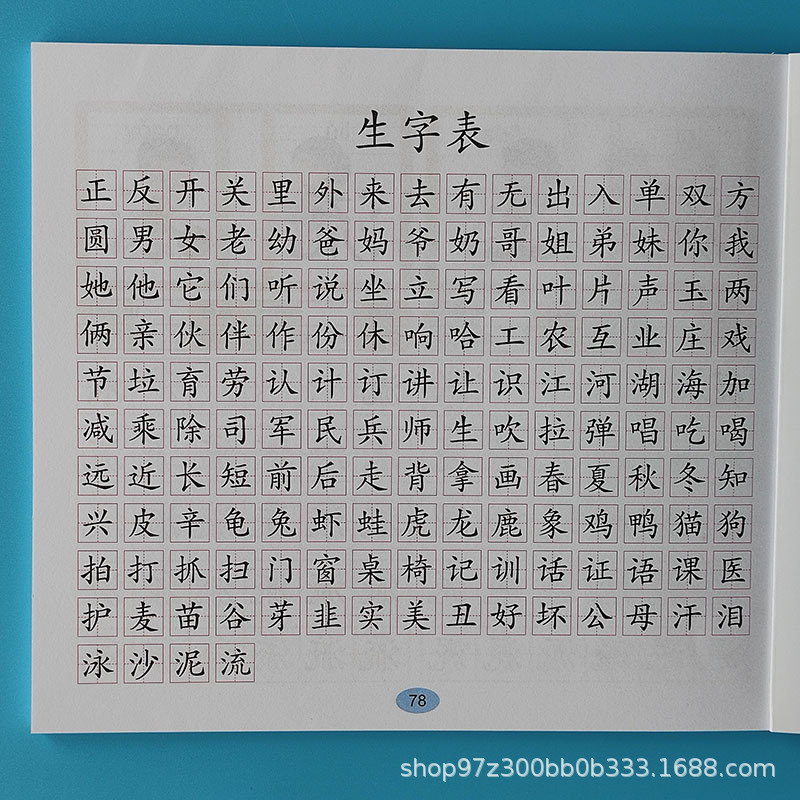 生字表
正反开关里外来去有无出入单双方
圆男女老幼爸妈爷奶哥姐弟妹你我
她他它们听说坐立写看叶片声玉两
俩亲伙伴作份休响哈工农互业庄戏
节垃育劳认计订讲让识江河湖海加
减乘除司军民兵师生吹拉弹唱吃喝
远近长短前后走背拿画春夏秋冬知
兴皮辛龟兔虾蛙虎龙鹿象鸡鸭猫狗
拍打抓扫门窗桌椅记训话证语课医
护麦苗谷芽韭实美丑好坏公母汗泪
泳沙泥流
78
shop97z300bb0b333.1688.com